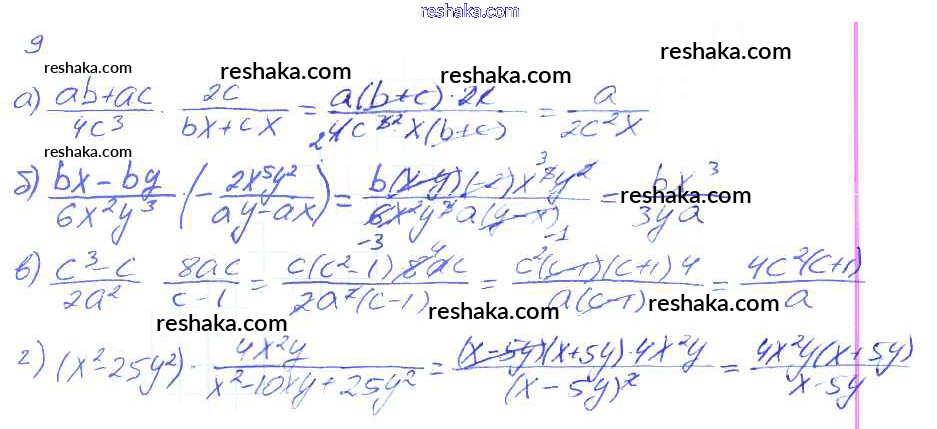 reshaka.com
9
reshaka.com reshaka.com reshaka.com reshaka.com
а) (ab+ac)/(4c³) · 2c/(bx+cx) = (a(b+c)·2c)/(4c³² x(b+c)) = a/(2c²x)
reshaka.com
б) (bx-by)/(6x²y³) · (-(2x⁵y²)/(ay-ax)) = (b(x-y)(-2)x⁵y²)/(6x²y³a(y-x)) = (bx³)/(3ya)
reshaka.com reshaka.com
в) (c³-c)/(2a²) · 8ac/(c-1) = (c(c²-1)8ac)/(2a²(c-1)) = (c²(c-1)(c+1)4)/(a(c-1)) = (4c²(c+1))/a
reshaka.com reshaka.com reshaka.com
г) (x²-25y²) · (4x²y)/(x²-10xy+25y²) = ((x-5y)(x+5y)·4x²y)/((x-5y)²) = (4x²y(x+5y))/(x-5y)